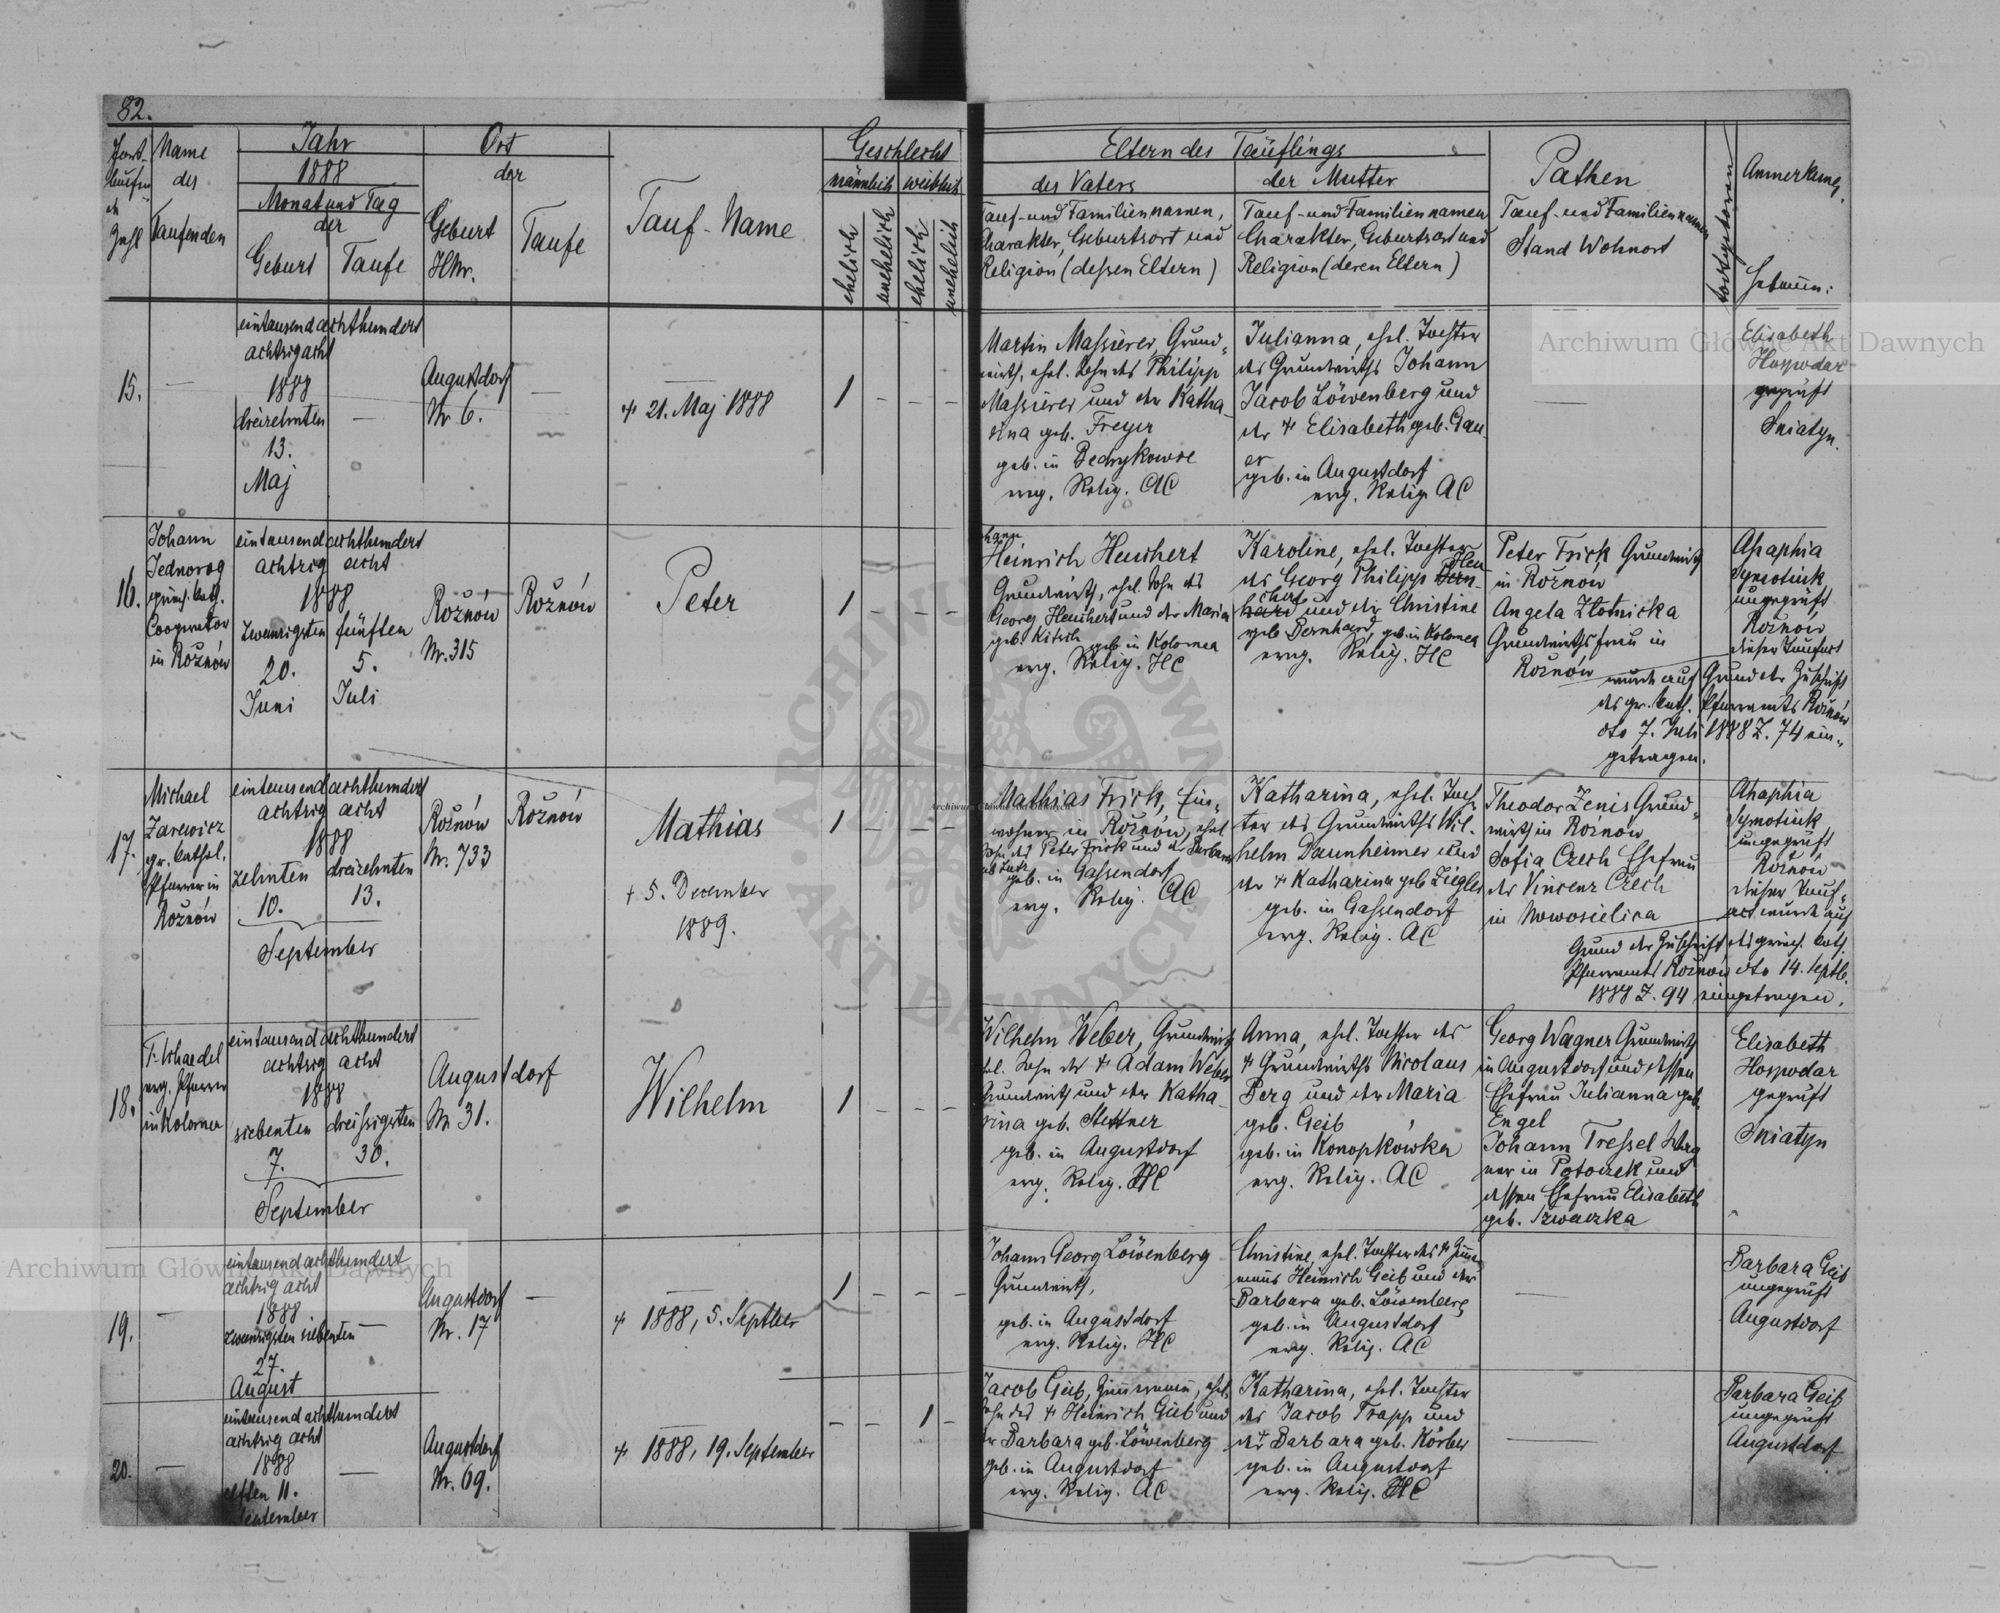 82.
Fortlaufende Zahl
Name des Taufenden
Jahr
1888
Monat und Tag
der
Geburt
Taufe
Ort
der
Geburt
HNr.
Taufe
Tauf-Name
Geschlecht
männlich
weiblich
ehelich
unehelich
ehelich
unehelich
Eltern des Täuflings
des Vaters
Tauf- und Familiennamen,
Charakter, Geburtsort und
Religion (dessen Eltern)
der Mutter
Tauf- und Familiennamen
Charakter, Geburtsort und
Religion (deren Eltern)
Pathen
Tauf- und Familiennamen
Stand Wohnort
todtgeboren
Anmerkung
Hebamm:
15.
—
eintausendachthundert
achtzigacht
1888
dreizehnten
13.
Maj
—
Augustdorf
Nr 6.
—
—
+ 21. Maj 1888
1 - - -
Martin Massierer, Grund-
wirth, ehel. Sohn des Philipp
Massierer und der Katha-
rina geb. Freyer
geb. in
evg. Relig. AC
Julianna, ehel. Tochter
des Grundwirths Johann
Jacob Löwenberg und
der + Elisabeth geb. Gau-
er
geb. in Augustdorf
evg. Relig. AC
—
Elisabeth
Hospodar
geprüft
Sniatyn.
16.
Johann
Jednorog
griech. kath.
Cooperator
in Rožnów
eintausendachthundert
achtzig acht
1888
zwanzigsten
20.
Juni
fünften
5.
Juli
Rožnów
Nr. 315
Rožnów
Peter
1 - - -
hann
Heinrich Heuchert
Grundwirth, ehel. Sohn des
Georg Heuchert und der Maria
geb. Kitsch geb. in Kolomea
evg. Relig. HC
Karoline, ehel. Tochter
des Georg Philipp Bern- Heu
hard chert und der Christine
geb Bernhard, geb. in Kolomea
evg. Relig. HC
Peter Frick, Grundwirth
in Rožnów
Angela Złotnicka
Grundwirthsfrau in
Rožnów
Ahaphia
Symotiuk
ungeprüft
Rožnów
dieser Taufact
wurde auf Grund der Zuschrift
des gr. kath. Pfarramts Rožnów
dto 7. Juli 1888 Z. 74 ein-
getragen.
17.
Michael
Zarewicz
gr. kathol.
Pfarrer in
Rožnów
eintausendachthundert
achtzig acht
1888
zehnten
10.
dreizehnten
13.
September
Rožnów
Nr. 733
Rožnów
Mathias
+ 5. December
1889.
1 - - -
Mathias Frick, Ein-
wohner in Rožnów, ehel
Sohn des Peter Frick und der Barbara
geb. in Gassendorf
evg. Relig. AC
Katharina, ehel. Toch-
ter des Grundwirths Wil-
helm Daunheimer und
der + Katharina geb Ziegler
geb. in Gassendorf
evg. Relig. AC
Theodor Zenis Grund-
wirth in Rožnów
Sofia Czech Ehefrau
des Vincenz Czech
in Nowosielica
Ahaphia
Symotiuk
ungeprüft
Rožnów
dieser Tauf-
act wurde auf
Grund der Zuschrift des griech. kath.
Pfarramts Rožnów dto 14. Septb.
1888 Z. 94 eingetragen.
18.
evg. Pfarrer
in Kolomea
eintausendachthundert
achtzig acht
1888
siebenten
7.
dreissigsten
30.
September
Augustdorf
Nr 31.
Wilhelm
1 - - -
Wilhelm Weber, Grundwirth
ehel. Sohn des + Adam Weber
Grundwirth und der Katha-
rina geb. Stettner
geb. in Augustdorf
evg. Relig. HC
Anna, ehel. Tochter des
+ Grundwirths Nicolaus
Berg und der Maria
geb. Geib
geb. in Konopkówka
evg. Relig. AC
Georg Wagner Grundwirth
in Augustdorf und dessen
Ehefrau Julianna geb.
Engel
Johann Tressel Wag
ner in Potoczek und
dessen Ehefrau Elisabeth
geb. Szwaczka
Elisabeth
Hospodar
geprüft
Sniatyn
19.
—
eintausendachthundert
achtzig acht
1888
zwanzigsten siebenten
27.
August
—
Augustdorf
Nr. 17
—
—
+ 1888, 5. Septber
1 - - -
Johann Georg Löwenberg
Grundwirth,
geb. in Augustdorf
evg. Relig. HC
Christine, ehel. Tochter des + Zimmer
manns Heinrich Geib und der
Barbara geb. Löwenberg
geb. in Augustdorf
evg. Relig. AC
—
Barbara Geib
ungeprüft
Augustdorf
20.
—
eintausendachthundert
achtzig acht
1888
elften 11.
September
—
Augustdorf
Nr. 69.
+ 1888, 19. September
- - 1 -
Jacob Geib, Zimmermann, ehel.
Sohn des + Heinrich Geib und
der Barbara geb. Löwenberg
geb. in Augustdorf
evg. Relig. AC
Katharina, ehel. Tochter
des Jacob Trapp und
der + Barbara geb. Körber
geb. in Augustdorf
evg. Relig. HC
—
Barbara Geib
ungeprüft
Augustdorf
Archiwum Główne Akt Dawnych
Archiwum Główne Akt Dawnych
Archiwum Główne Akt Dawnych
ARCHIWUM GŁÓWNE
AKT DAWNYCH